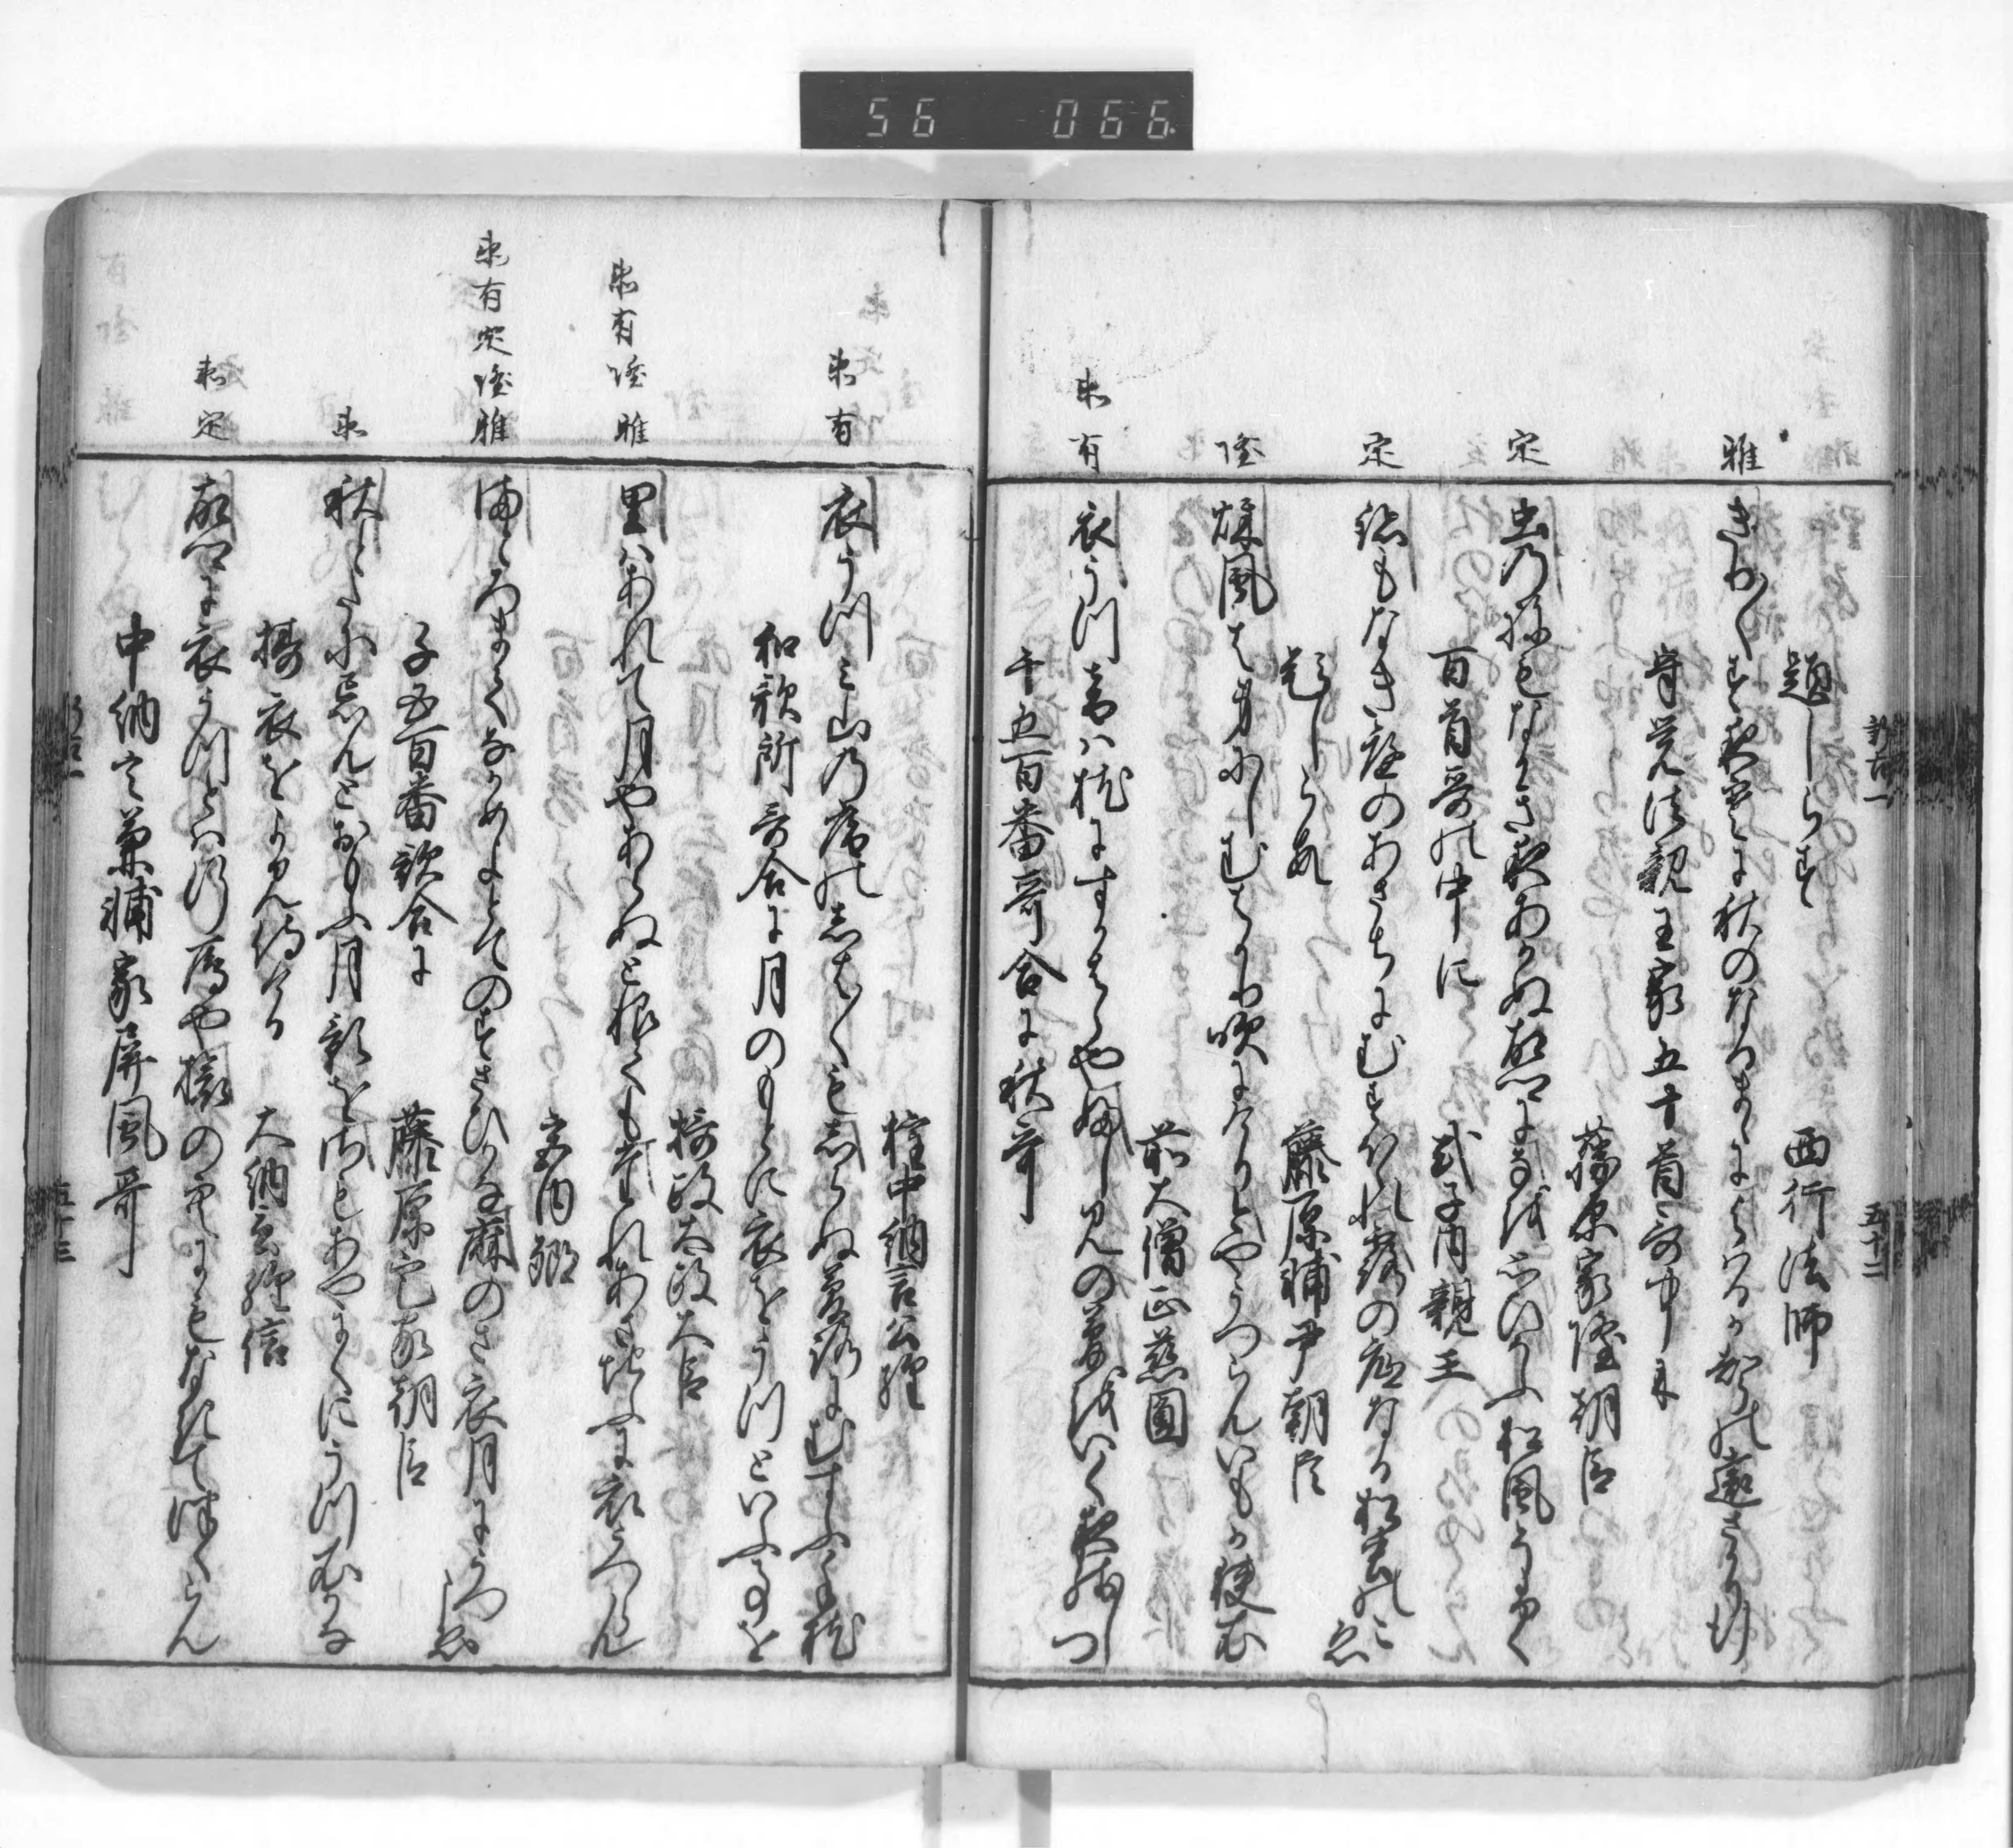 56 066
新古一
五十二
題しらす
西行法師
雅
きり／＼す夜寒に秋のなるまゝによはるか声の遠さかり行
守覚法親王家五十首哥中に
藤原家隆朝臣
定
虫の練もなかき夜あかぬ故郷になを思ひそふ松風そ吹く
百首哥の中に
式子内親王
定
跡もなき庭のあさちにむすほれ露の底なる松虫のこゑ
題しらす
藤原輔尹朝臣
隆
秋風は身にしむはかり吹にけり今やうつらんいもか狭衣
前大僧正慈圓
束有
衣うつ音は枕にすかはらや伏見の夢をいく夜残しつ
千五百番哥合に秋哥
権中納言公経
束有
衣うつみ山の庵のしは／＼もしらぬ夢路にむすふ手枕
和歌所哥合に月のもとに衣をうつといふ事を
摂政太政大臣
束有隆雅
里はあれて月やあらぬと恨ても誰あさちふに衣うつらん
宮内卿
束有定隆雅
まとろまてなかめよとてのすさひかな麻のさ衣月にうつこゑ
千五百番歌合に
藤原定家朝臣
束
秋とたに忘んとおもふ月影をさもあやにくにうつ衣かな
擣衣をよみ侍ける
大納言経信
束定
故郷に衣うつとは行鴈や旅の空にもなきてつくらん
中納言兼輔家屏風哥
新古一
五十三